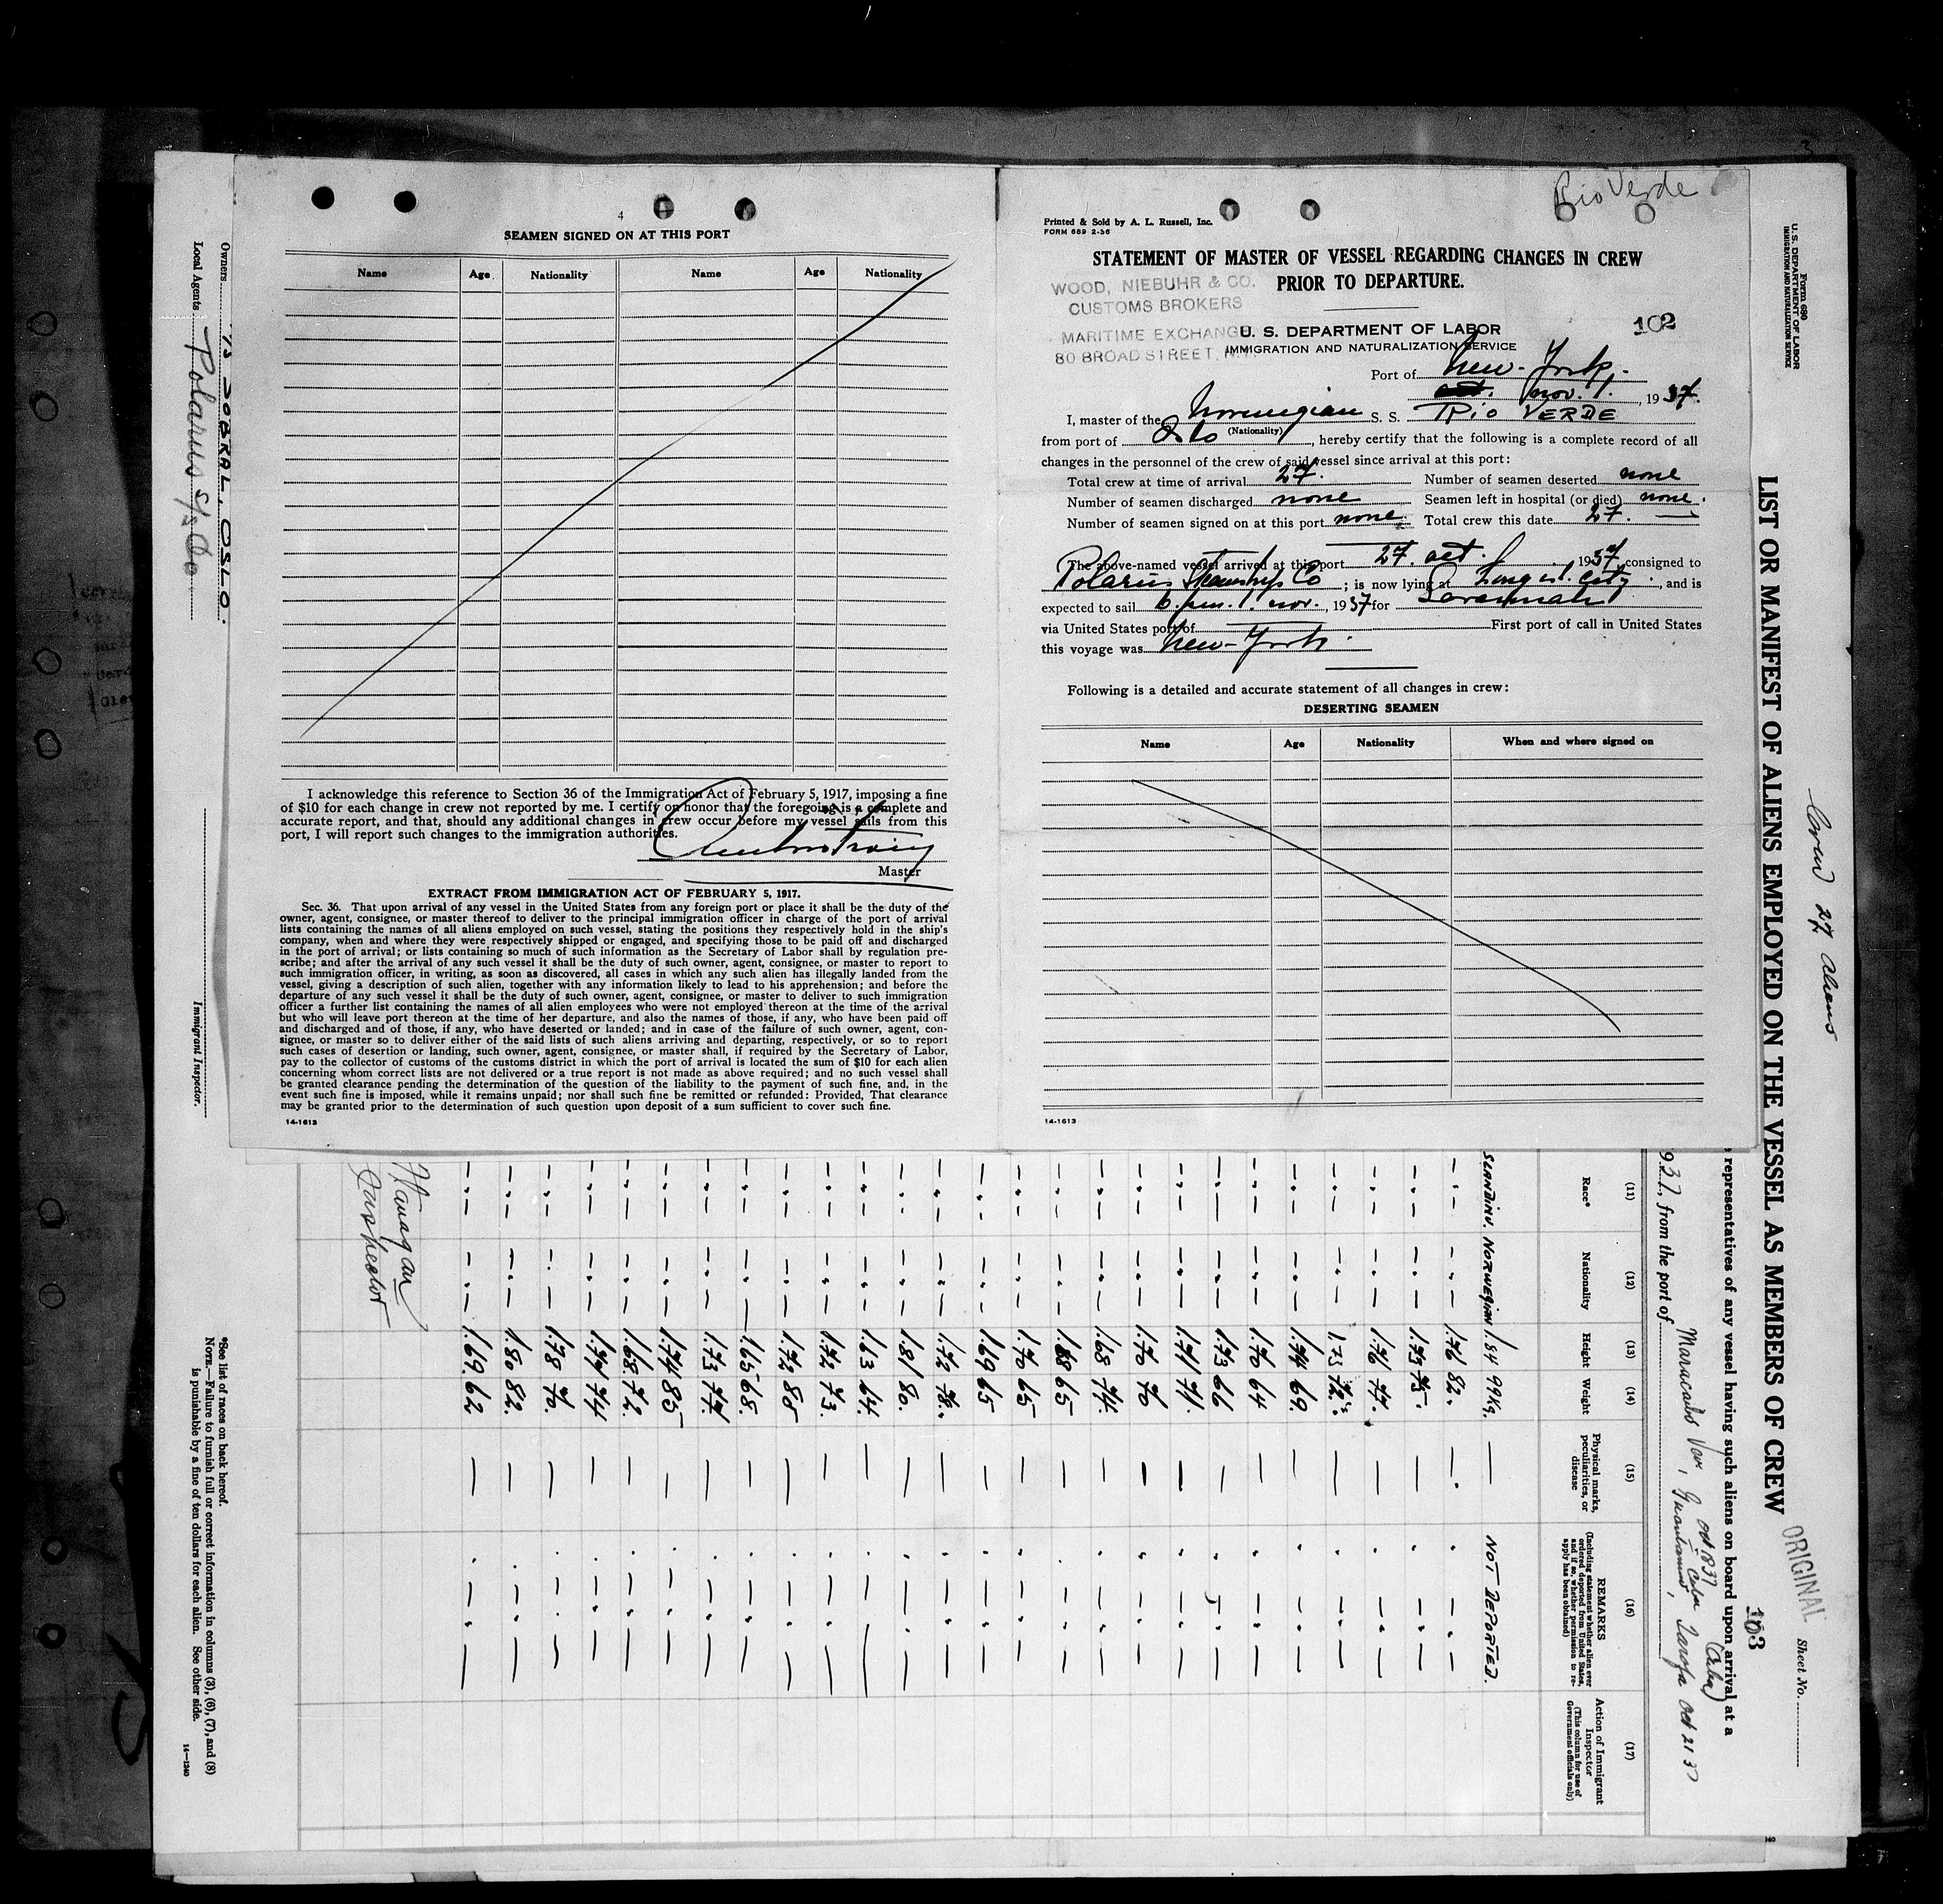 4
SEAMEN SIGNED ON AT THIS PORT
Name Age Nationality Name Age Nationality
I acknowledge this reference to Section 36 of the Immigration Act of February 5, 1917, imposing a fine
of $10 for each change in crew not reported by me. I certify on honor that the foregoing is a complete and
accurate report, and that, should any additional changes in crew occur before my vessel sails from this
port, I will report such changes to the immigration authorities.
Master
EXTRACT FROM IMMIGRATION ACT OF FEBRUARY 5, 1917.
Sec. 36. That upon arrival of any vessel in the United States from any foreign port or place it shall be the duty of the
owner, agent, consignee, or master thereof to deliver to the principal immigration officer in charge of the port of arrival
lists containing the names of all aliens employed on such vessel, stating the positions they respectively hold in the ship's
company, when and where they were respectively shipped or engaged, and specifying those to be paid off and discharged
in the port of arrival; or lists containing so much of such information as the Secretary of Labor shall by regulation pre-
scribe; and after the arrival of any such vessel it shall be the duty of such owner, agent, consignee, or master to report to
such immigration officer, in writing, as soon as discovered, all cases in which any such alien has illegally landed from the
vessel, giving a description of such alien, together with any information likely to lead to his apprehension; and before the
departure of any such vessel it shall be the duty of such owner, agent, consignee, or master to deliver to such immigration
officer a further list containing the names of all alien employees who were not employed thereon at the time of the arrival
but who will leave port thereon at the time of her departure, and also the names of those, if any, who have been paid off
and discharged and of those, if any, who have deserted or landed; and in case of the failure of such owner, agent, con-
signee, or master so to deliver either of the said lists of such aliens arriving and departing, respectively, or so to report
such cases of desertion or landing, such owner, agent, consignee, or master shall, if required by the Secretary of Labor,
pay to the collector of customs of the customs district in which the port of arrival is located the sum of $10 for each alien
concerning whom correct lists are not delivered or a true report is not made as above required; and no such vessel shall
be granted clearance pending the determination of the question of the liability to the payment of such fine, and, in the
event such fine is imposed, while it remains unpaid; nor shall such fine be remitted or refunded: Provided, That clearance
may be granted prior to the determination of such question upon deposit of a sum sufficient to cover such fine.
14-1613
Rio Verde
Printed & Sold by A. L. Russell, Inc.
FORM 689 2-36
STATEMENT OF MASTER OF VESSEL REGARDING CHANGES IN CREW
PRIOR TO DEPARTURE.
WOOD, NIEBUHR & CO.
CUSTOMS BROKERS
MARITIME EXCHANGE
80 BROAD STREET, N.Y.
U. S. DEPARTMENT OF LABOR
IMMIGRATION AND NATURALIZATION SERVICE
102
Port of New-York,
nov. 1., 1937.
I, master of the Norwegian S. S. RIO VERDE
(Nationality)
from port of Oslo, hereby certify that the following is a complete record of all
changes in the personnel of the crew of said vessel since arrival at this port:
Total crew at time of arrival 27. Number of seamen deserted none
Number of seamen discharged none Seamen left in hospital (or died) none.
Number of seamen signed on at this port none. Total crew this date 27. —
The above-named vessel arrived at this port 27. oct. 1937, consigned to
Polarus Steamship Co; is now lying at Long isl. city, and is
expected to sail 6. pm. 1. nov., 1937 for Savannah
via United States port of First port of call in United States
this voyage was New-York.
Following is a detailed and accurate statement of all changes in crew:
DESERTING SEAMEN
Name Age Nationality When and where signed on
14-1613
Form 680
U. S. DEPARTMENT OF LABOR
IMMIGRATION AND NATURALIZATION SERVICE
LIST OR MANIFEST OF ALIENS EMPLOYED ON THE VESSEL AS MEMBERS OF CREW
27 aliens
ORIGINAL
Sheet No.
103
representatives of any vessel having such aliens on board upon arrival at a
937, from the port of Maracaibo Ven, Guantanamo, Cuba
Oct 21 37
(11) (12) (13) (14) (15) (16) (17)
Race* Nationality Height Weight Physical marks, peculiarities, or disease REMARKS (Including statement whether alien ever ordered deported from United States, and if so, whether permission to re-apply has been obtained) Action of Immigrant Inspector (This column for use of Government officials only)
SCANDINV. NORWEGIAN 1.84 99Kg. — NOT DEPORTED.
—〃— —〃— 1.76 82. — —〃—
—〃— —〃— 1.73 75. — —〃—
—〃— —〃— 1.76 77. — —〃—
—〃— —〃— 1.73 72. — —〃—
—〃— —〃— 1.74 69. — —〃—
—〃— —〃— 1.70 64 — —〃—
—〃— —〃— 1.73 66 — —〃—
—〃— —〃— 1.71 71. — —〃—
—〃— —〃— 1.70 70 — —〃—
—〃— —〃— 1.68 74. — —〃—
—〃— —〃— 1.68 65 — —〃—
—〃— —〃— 1.70 65 — —〃—
—〃— —〃— 1.69 65 — —〃—
—〃— —〃— 1.72 78. — —〃—
—〃— —〃— 1.81 80. — —〃—
—〃— —〃— 1.63 64. — —〃—
—〃— —〃— 1.72 73. — —〃—
—〃— —〃— 1.72 88 — —〃—
—〃— —〃— 1.65 68. — —〃—
—〃— —〃— 1.73 77. — —〃—
—〃— —〃— 1.74 85 — —〃—
—〃— —〃— 1.68 72. — —〃—
—〃— —〃— 1.74 74 — —〃—
—〃— —〃— 1.78 70. — —〃—
—〃— —〃— 1.80 82. — —〃—
—〃— —〃— 1.69. 62 — —〃—
Flanagan
Inspector
Owners SOBRAL, OSLO.
Local Agents Polarus S/S Co.
Immigrant Inspector.
*See list of races on back hereof.
NOTE.—Failure to furnish full or correct information in columns (3), (6), (7), and (8)
is punishable by a fine of ten dollars for each alien. See other side.
14—1240